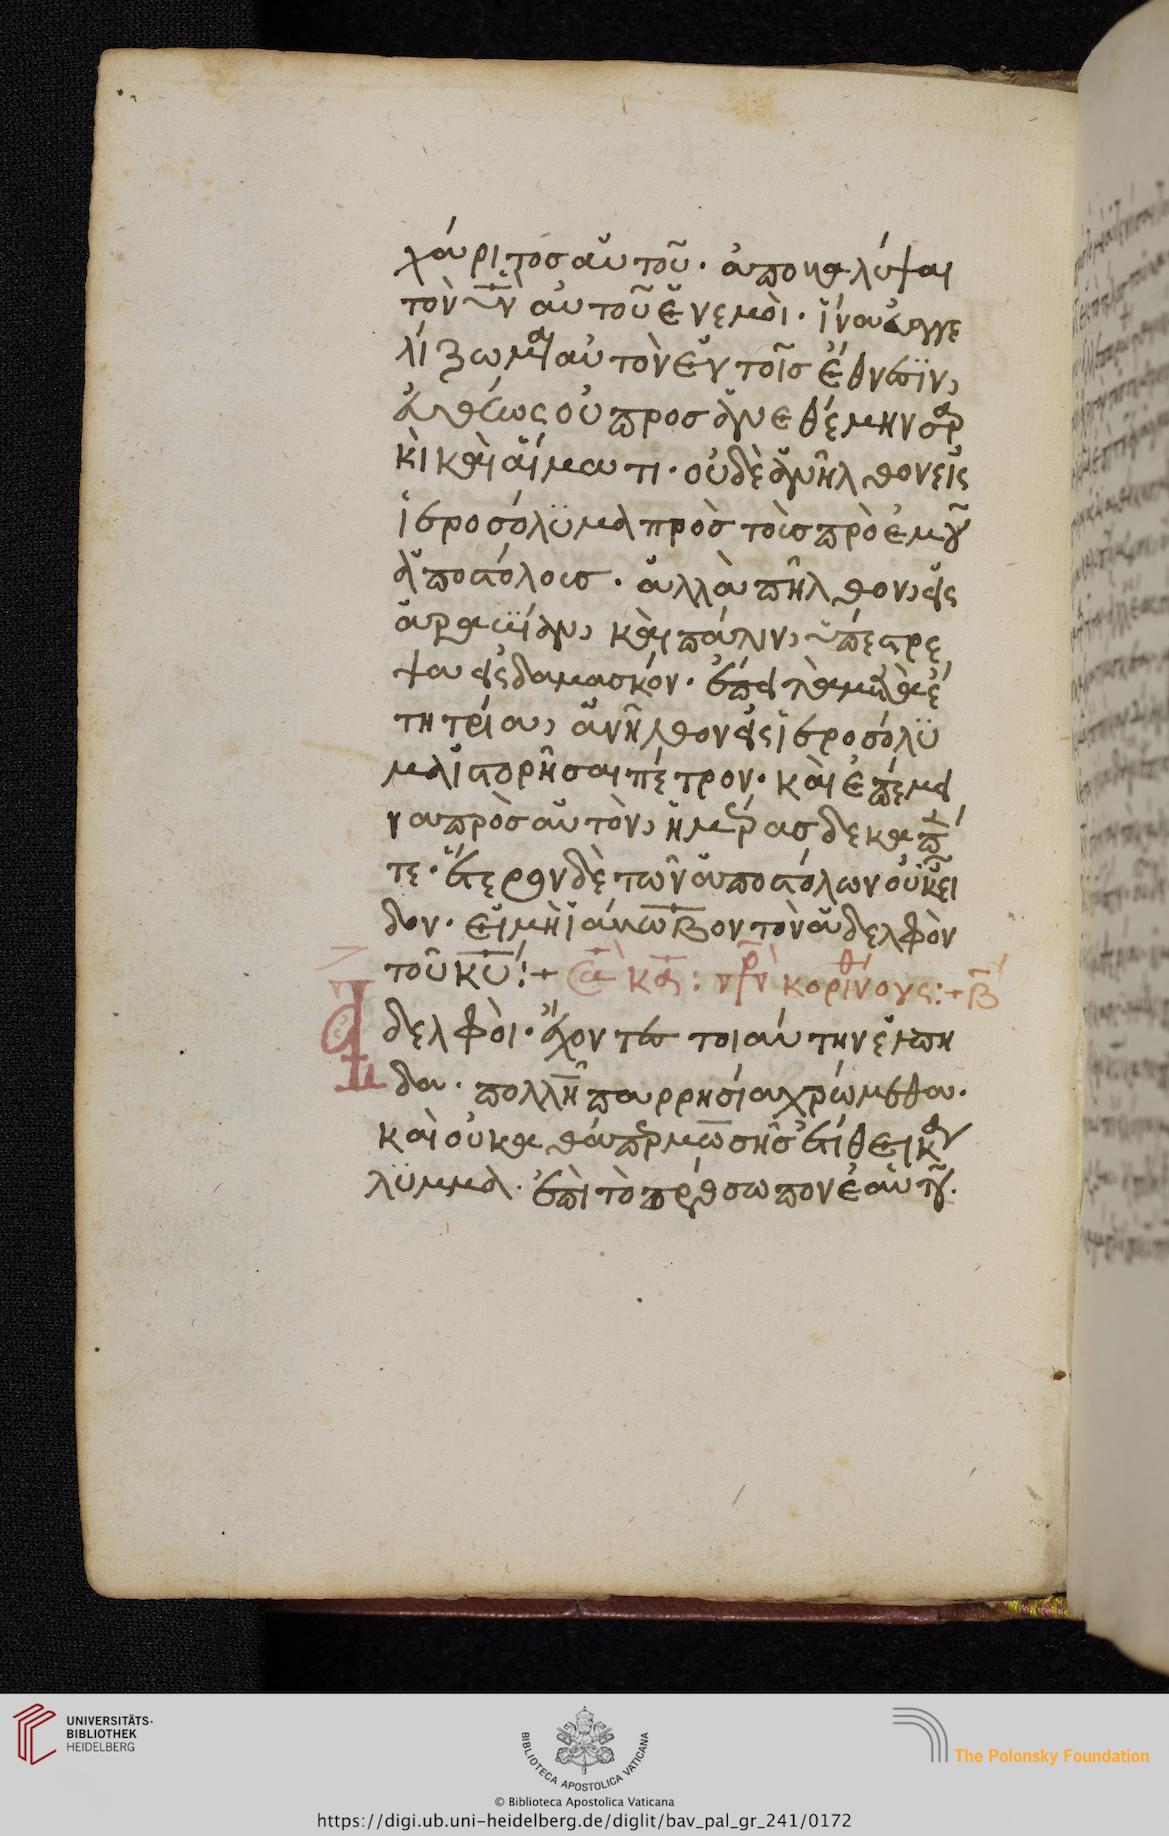 χάριτος αὐτοῦ· ἀποκαλύψαι
τὸν υ̅ν̅ αὐτοῦ ἐν ἐμοὶ· ἵνα εὐαγγε
λίζωμαι αὐτὸν ἐν τοῖς ἔθνεσϊν,
εὐθέως οὐ προσανεθέμην σαρ
κὶ καὶ αἵματι· οὐδὲ ἀνῆλθον εἰς
ἱεροσόλϋμα πρὸς τοὺς πρὸ ἐμοῦ
ἀποστόλους· ἀλλὰ ἀπῆλθον, εἰς
ἀραβϊαν, καὶ πάλιν, ὑπέστρε
ψα εἰς δαμασκόν· ἔπειτα μετὰ ἔ
τη τρία, ἀνῆλθον εἰς ἱεροσόλϋ
μα ἱστορῆσαι πέτρον· καὶ ἐπέμει
να πρὸς αὐτὸν, ἡμέρας δεκαπέ
τε· ἕτερον δὲ τῶν ἀποστόλων οὐκ εἶ
δον· εἰ μὴ ἰάκωβον τὸν ἀδελφὸν
τοῦ κ̅υ̅:+ κορινθίους:+
δελφοὶ· ἔχοντες τοιαύτην ἐλπη
δα· πολλῆ παρρησία χρώμεθα·
καὶ οὐ καθάπερ μωσῆς ἐτίθει κα
λϋμμα· ἐπὶ τὸ πρόσωπον ἑαυτοῦ.
UNIVERSITÄTS-
BIBLIOTHEK
HEIDELBERG
BIBLIOTECA APOSTOLICA VATICANA
The Polonsky Foundation
© Biblioteca Apostolica Vaticana
https://digi.ub.uni-heidelberg.de/diglit/bav_pal_gr_241/0172